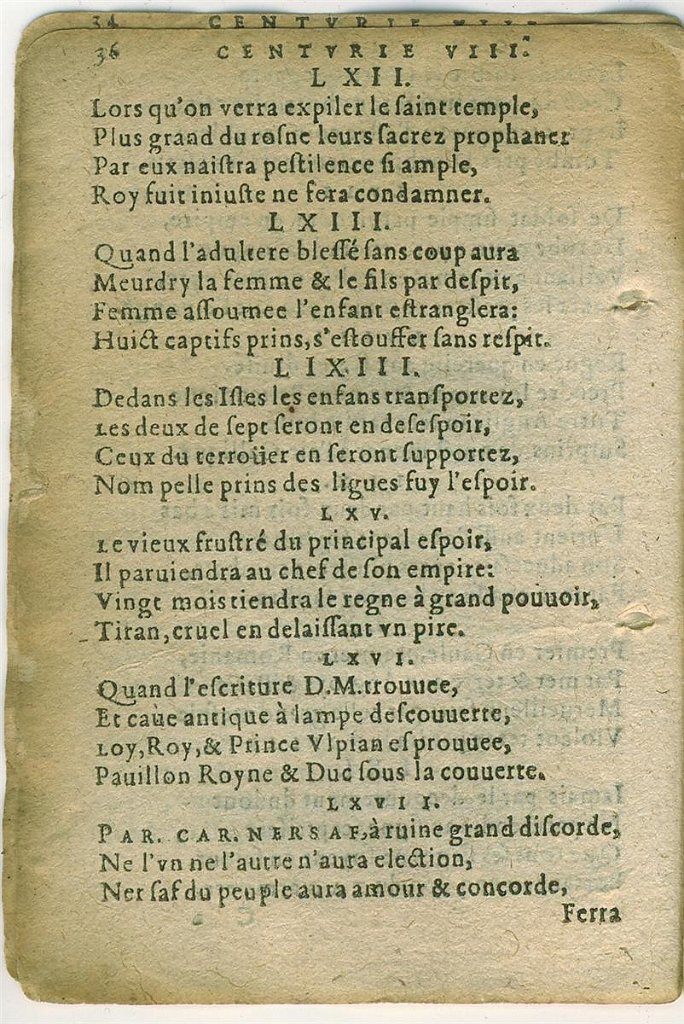 34 CENTVRIE VIII.
36 CENTVRIE VIII.
LXII.
Lors qu'on verra expiler le ſaint temple,
Plus grand du roſne leurs ſacrez prophaner
Par eux naiſtra peſtilence ſi ample,
Roy fuit iniuſte ne fera condamner.
LXIII.
Quand l'adultere bleſſé ſans coup aura
Meurdry la femme & le fils par deſpit,
Femme aſſoumee l'enfant eſtranglera:
Huict captifs prins, s'eſtouffer ſans reſpit.
LIXIII.
Dedans les Iſles les enfans tranſportez,
Les deux de ſept ſeront en deſeſpoir,
Ceux du terroüer en ſeront ſupportez,
Nom pelle prins des ligues fuy l'eſpoir.
LXV.
Le vieux fruſtré du principal eſpoir,
Il paruiendra au chef de ſon empire:
Vingt mois tiendra le regne à grand pouuoir,
Tiran, cruel en delaiſſant vn pire.
LXVI.
Quand l'eſcriture D.M. trouuee,
Et caue antique à lampe deſcouuerte,
Loy, Roy, & Prince Vlpian eſprouuee,
Pauillon Royne & Duc ſous la couuerte.
LXVII.
PAR. CAR. NERSAF, à ruine grand diſcorde,
Ne l'vn ne l'autre n'aura election,
Ner ſaf du peuple aura amour & concorde,
Ferra